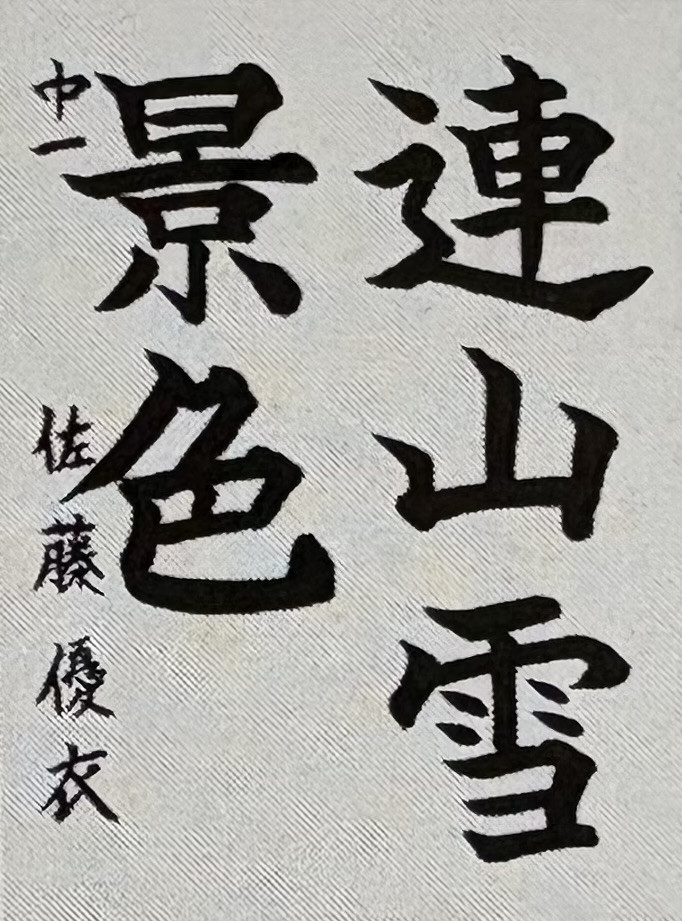 連山雪
景色
中一 佐藤優衣